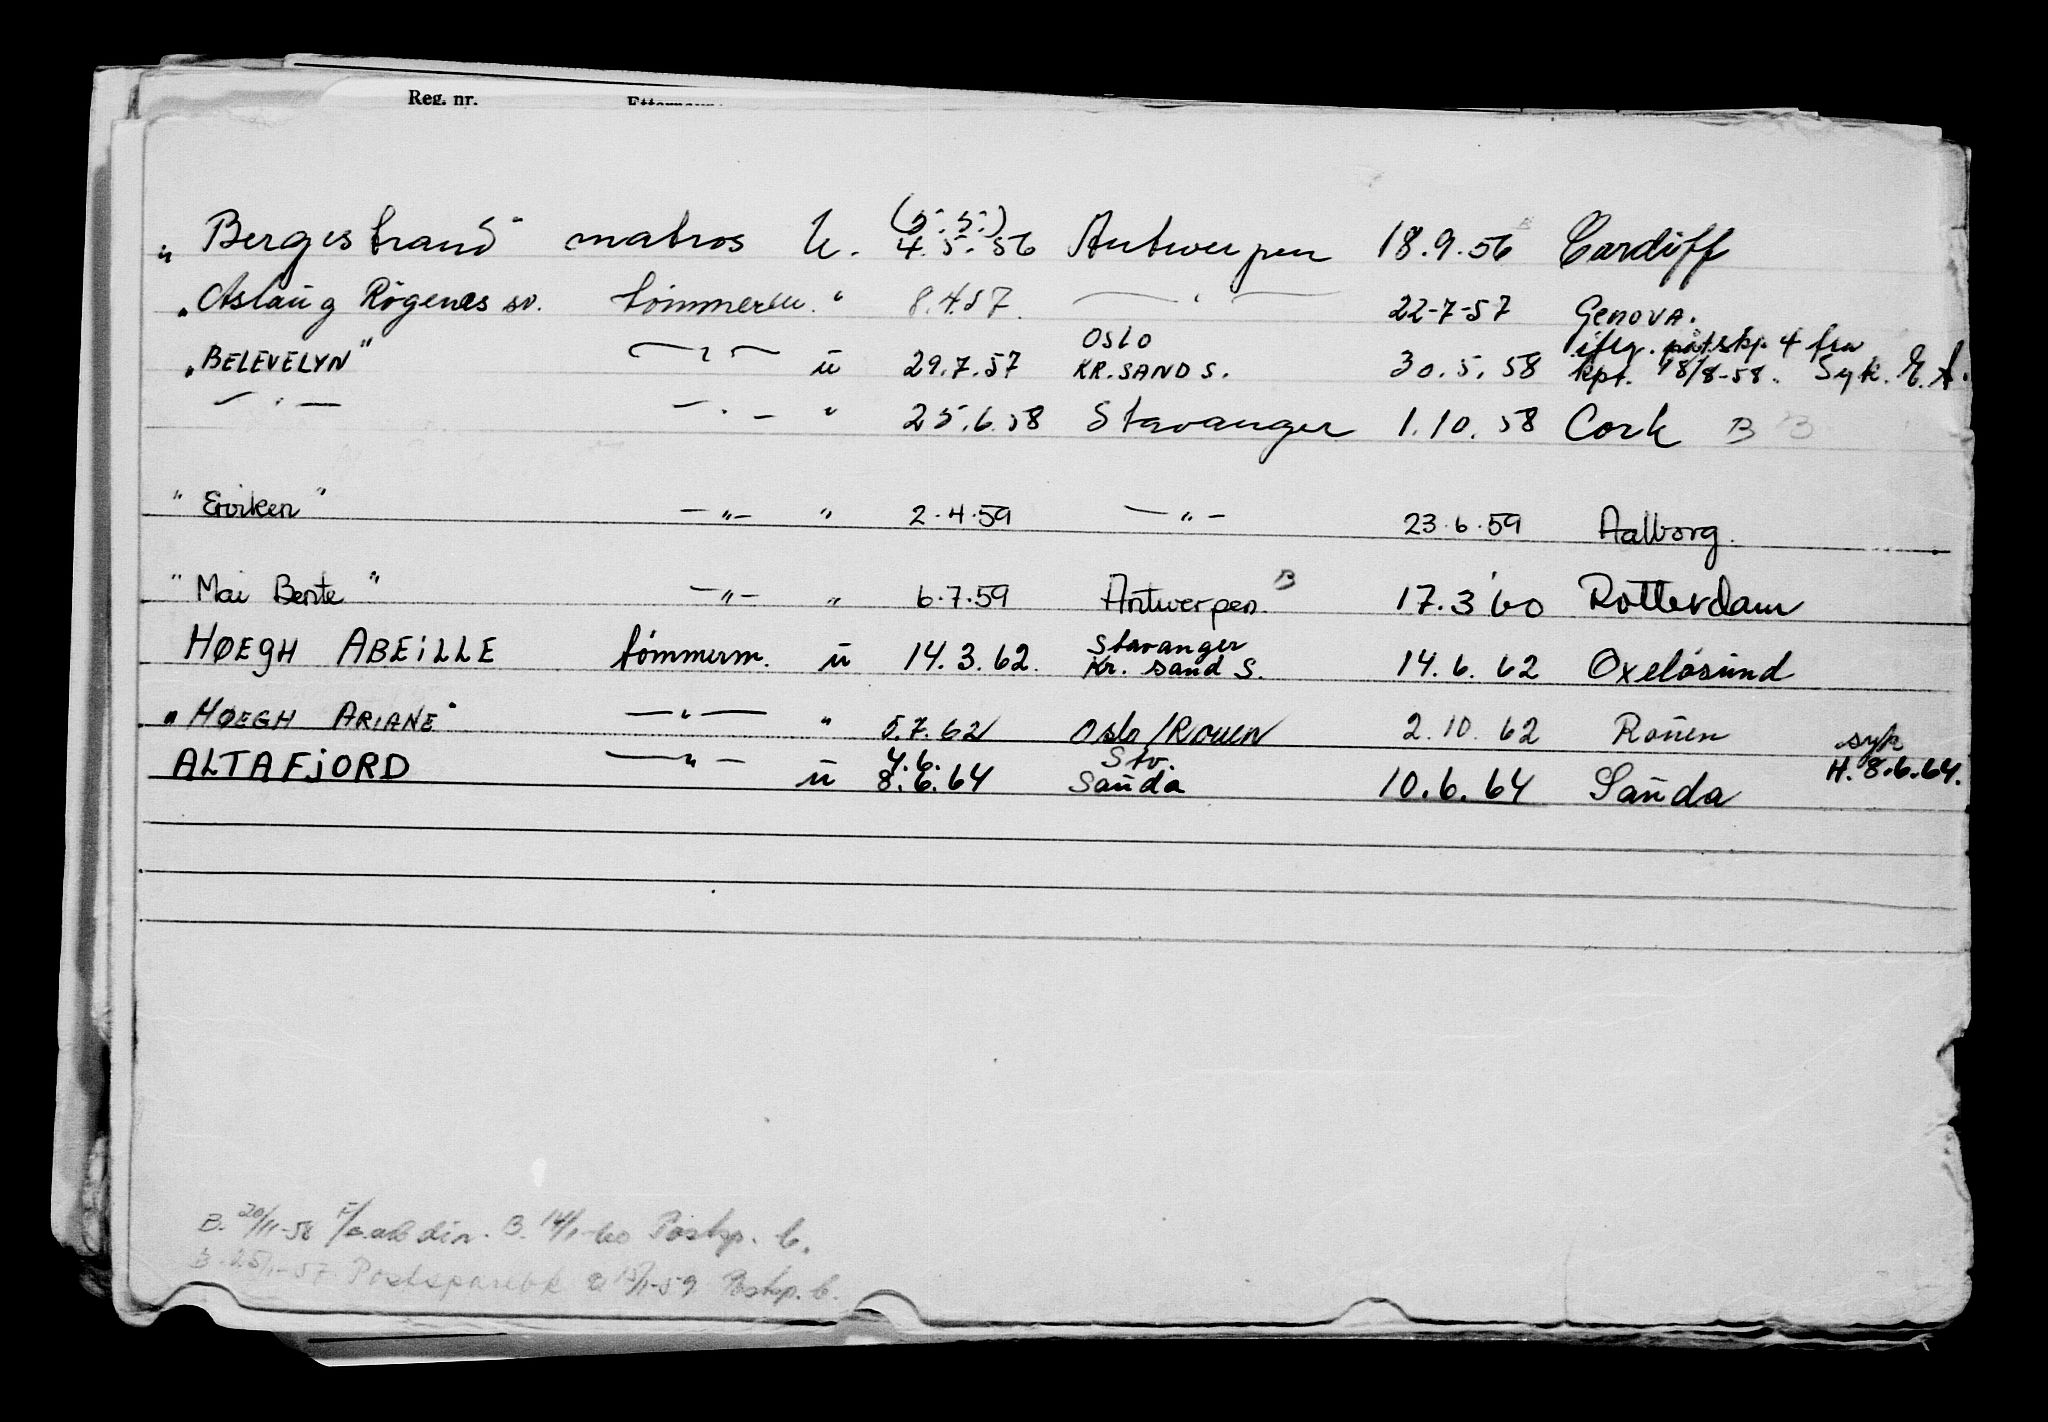 Reg. nr. Etternavn
(5. 5.)
„ Bergestrand" matros U. 4. 5. 56 Antwerpen 18.9.56 Cardiff
„ Aslaug Rögenæs sv. tömmerm. " 8.4.57. — " — 22-7-57 Genova.
Oslo iflg. påt. skp. 4 fra
„ BELEVELYN" — " — ū 29.7.57 KR.SAND S. 30.5.58 kpt. 18/8-58. Syk. E. A.
— " — — " — " 25.6.58 Stavanger 1.10.58 Cork B B
" Eroiken " — " — " 2.4.59 — " — 23.6.59 Aalborg.
" Mai Bente " — " — " 6.7.59 Antwerpen. B 17.3 60 Rotterdam
Stavanger
HØEGH ABEiLLE tömmerm. ū 14.3.62. Kr. sand S. 14.6.62 Oxelösund
" HØEGH ARIANE" — " — " 5.7.62 Oslo/Rouen 2.10.62 Roūen
4.6. Stv. syk
ALTAFJORD — " — ū 8.6.64 Saūda 10.6.64 Saūda H. 8.6.64.
B. 20/11-58 din. B. 14/1-60 Postsp. b.
B. 25/1-57 Postsparebk B 15/1-59 Postsp. b.